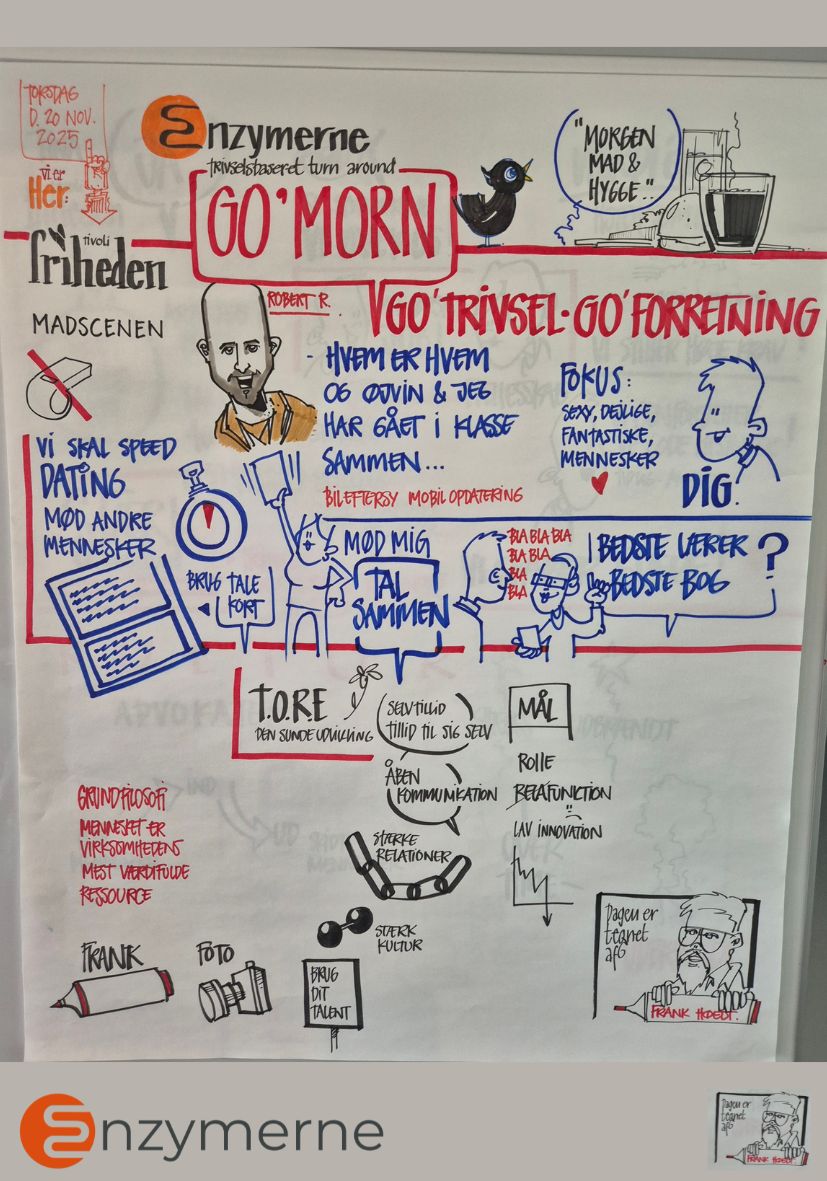 TORSDAG
D. 20 NOV.
2025
vi er
Her:
Enzymerne
trivselsbaseret turn around
GO'MORN
"MORGEN
MAD &
HYGGE.."
tivoli
friheden
MADSCENEN
ROBERT R.
GO'TRIVSEL · GO'FORRETNING
- HVEM ER HVEM
OG ØJVIN & JEG
HAR GÅET I KLASSE
SAMMEN...
BILEFTERSY MOBIL OPDATERING
FOKUS:
SEXY, DEJLIGE,
FANTASTISKE,
MENNESKER
DIG.
VI SKAL SPEED
DATING
MØD ANDRE
MENNESKER
BRUG TALE
KORT
MØD MIG
TAL
SAMMEN
BLA BLA BLA
BLA BLA
BLA
BLA
BLA
BEDSTE LÆRER
BEDSTE BOG
?
T.O.R.E
DEN SUNDE UDVIKLING
SELVTILLID
TILLID TIL SIG SELV
MÅL
ROLLE
ÅBEN
KOMMUNIKATION
LAV INNOVATION
STÆRKE
RELATIONER
GRUNDFILOSOFI
MENNESKET ER
VIRKSOMHEDENS
MEST VÆRDIFULDE
RESSOURCE
STÆRK
KULTUR
FRANK
FOTO
BRUG
DIT
TALENT
Dagen er
tegnet
af
FRANK HOEDT.
Enzymerne
Dagen er
tegnet
af
FRANK HOEDT.